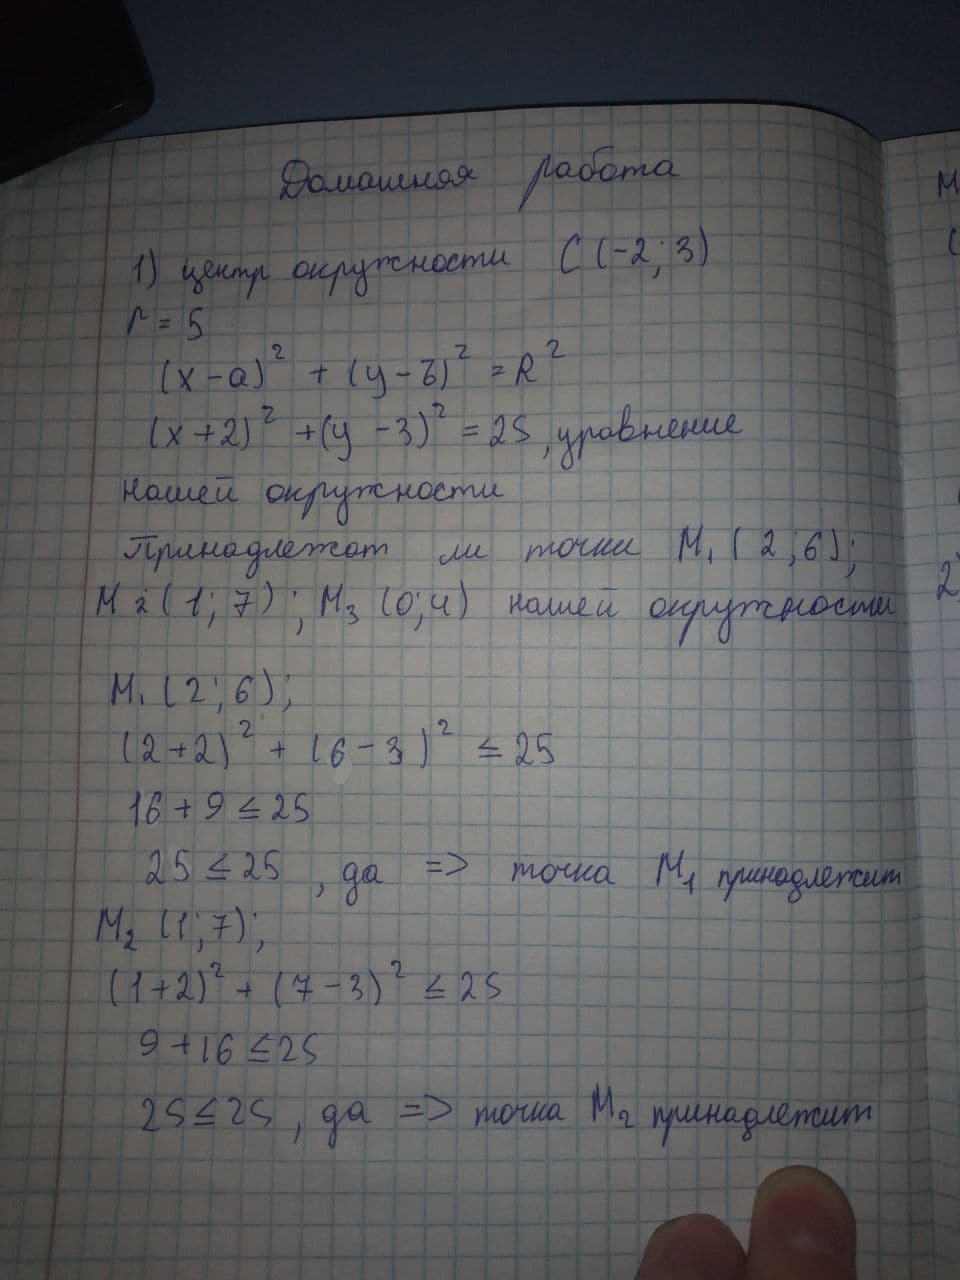 Домашная работа
1) центр окружности C (-2; 3)
r = 5
(x-a)² + (y-b)² = R²
(x+2)² + (y-3)² = 25, уравнение
нашей окружности
Принадлежат ли точки M₁ (2; 6);
M₂ (1; 7); M₃ (0; 4) нашей окружности
M₁ (2; 6);
(2+2)² + (6-3)² ≤ 25
16 + 9 ≤ 25
25 ≤ 25, да => точка M₁ принадлежит
M₂ (1; 7);
(1+2)² + (7-3)² ≤ 25
9 + 16 ≤ 25
25 ≤ 25, да => точка M₂ принадлежит
M
(
2